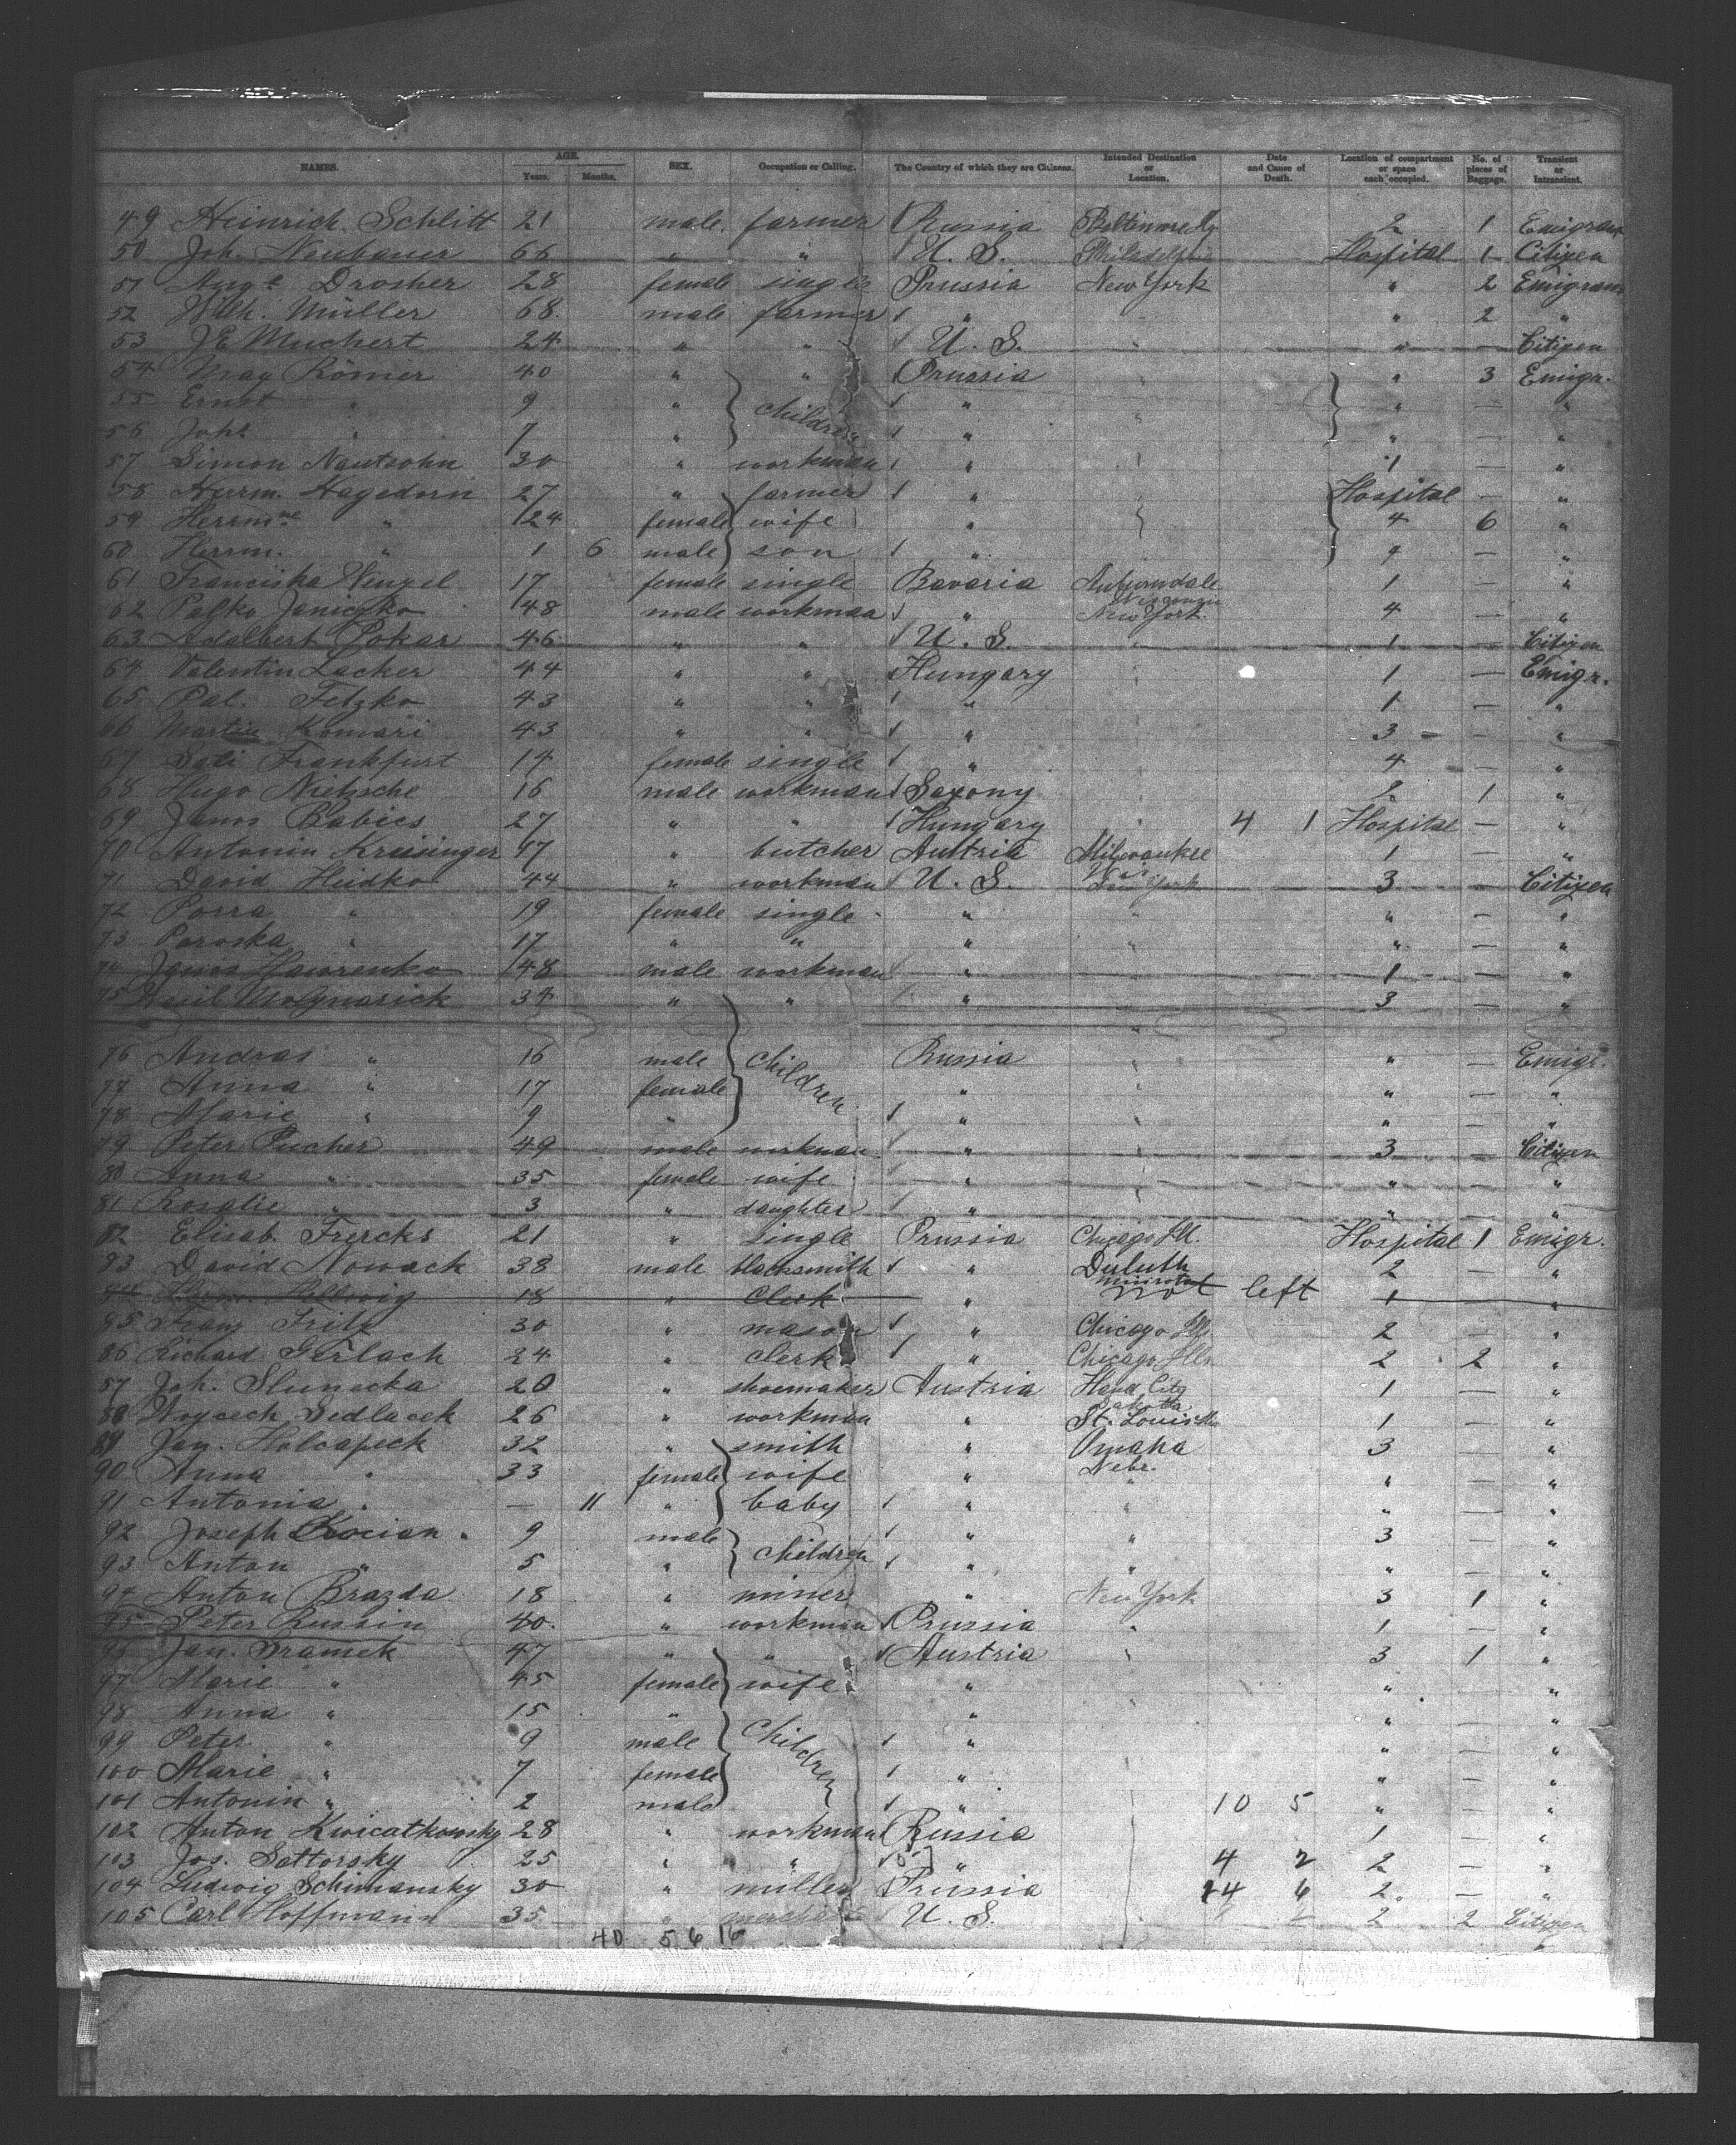 NAMES. AGE. Years. Months. SEX. Occupation or Calling. The Country of which they are Citizens. Intended Destination or Location. Date and Cause of Death. Location of compartment or space each occupied. No. of pieces of Baggage. Transient or Intransient.
49 Heinrich Schlitt 21 male farmer Russia 2 1 Emigrant
50 Joh. Neubauer 66 " " U. S. Philadelphia Hospital 1 Citizen
51 Augt Drosher 28 female single Prussia New York " 2 Emigrant
52 Wilh. Müller 68 male farmer " " 2 "
53 JE Muchert 24 " " U. S. " — Citizen
54 May Römer 40 " " Prussia " 3 Emigr.
55 Ernst " 9 " children " " — "
56 Johs " 7 " " " — "
57 Simon Nautsohn 30 " workman " 1 — "
58 Herrm. Hagedorn 27 " farmer " Hospital — "
59 Herrmne " 24 female wife " 4 6 "
60 Herrm. " 1 6 male son " 4 — "
61 Franciska Wenzel 17 female single Bavaria Auburndale Wisconsin 1 — "
62 Palko Janiczko 48 male workman " New York 4 — "
63 Adalbert Pokar 46 " " U. S. 1 — Citizen
64 Valentin Lacher 44 " " Hungary 1 — Emigr.
65 Pal. Fetzko 43 " " " 1 — "
66 Martin Komari 43 " " " 3 — "
67 Sali Frankfurt 14 female single " 4 — "
68 Hugo Nietzsche 16 male workman Saxony 2 1 "
69 Janos Babics 27 " " Hungary 4 1 Hospital — "
70 Antonin Kreisinger 17 " butcher Austria Milwaukee Wis. 1 — "
71 David Heidko 44 " workman U. S. New York 3 — Citizen
72 Porra " 19 female single " " " — "
73 Poroska " 17 " " " " " — "
74 Janos Hawrenko 48 male workman " 1 — "
75 Wasil Molynarick 34 " " " 3 — "
76 Andras " 16 male children Russia " — Emigr.
77 Anna " 17 female " " — "
78 Marie " 9 " " " — "
79 Peter Pucher 49 male workman " 3 — Citizen
80 Anna " 35 female wife " " — "
81 Rosalie " 3 " daughter " " — "
82 Elisab. Frercks 21 " single Prussia Chicago Ill. Hospital 1 Emigr.
83 David Nowack 38 male blacksmith " Duluth Minnesota 2 — "
84 Herm. Hellwig 18 " clerk " not left 1 — "
85 Franz Fritz 30 " mason " Chicago Ills 2 — "
86 Richard Gerlach 24 " clerk " Chicago Ills 2 2 "
87 Joh. Slunecka 20 " shoemaker Austria City Dakotta 1 — "
88 Woycech Sedlacek 26 " workman " St. Louis Mo 1 — "
89 Jan. Holcapeck 32 " smith " Omaha Nebr. 3 — "
90 Anna " 33 female wife " " " — "
91 Antonia " — 11 " baby " " " — "
92 Joseph Kocian " 9 male children " " 3 — "
93 Anton " 5 " " " " — "
94 Anton Brazda 18 " miner " New York 3 1 "
95 Peter Russin 40 " workman Prussia " 1 — "
96 Jan. Dramek 47 " " Austria 3 1 "
97 Marie " 45 female wife " " — "
98 Anna " 15 " children " " — "
99 Peter " 9 male " " — "
100 Marie " 7 female " " — "
101 Antonin " 2 male " 10 5 " — "
102 Anton Kwicatkowsky 28 " workman Russia 1 — "
103 Jos. Sottorsky 25 " " " 4 2 2 — "
104 Ludwig Schimansky 30 " miller Prussia 14 6 2 — "
105 Carl Hoffmann 35 " U. S. 2 2 Citizen
40 5 6 16